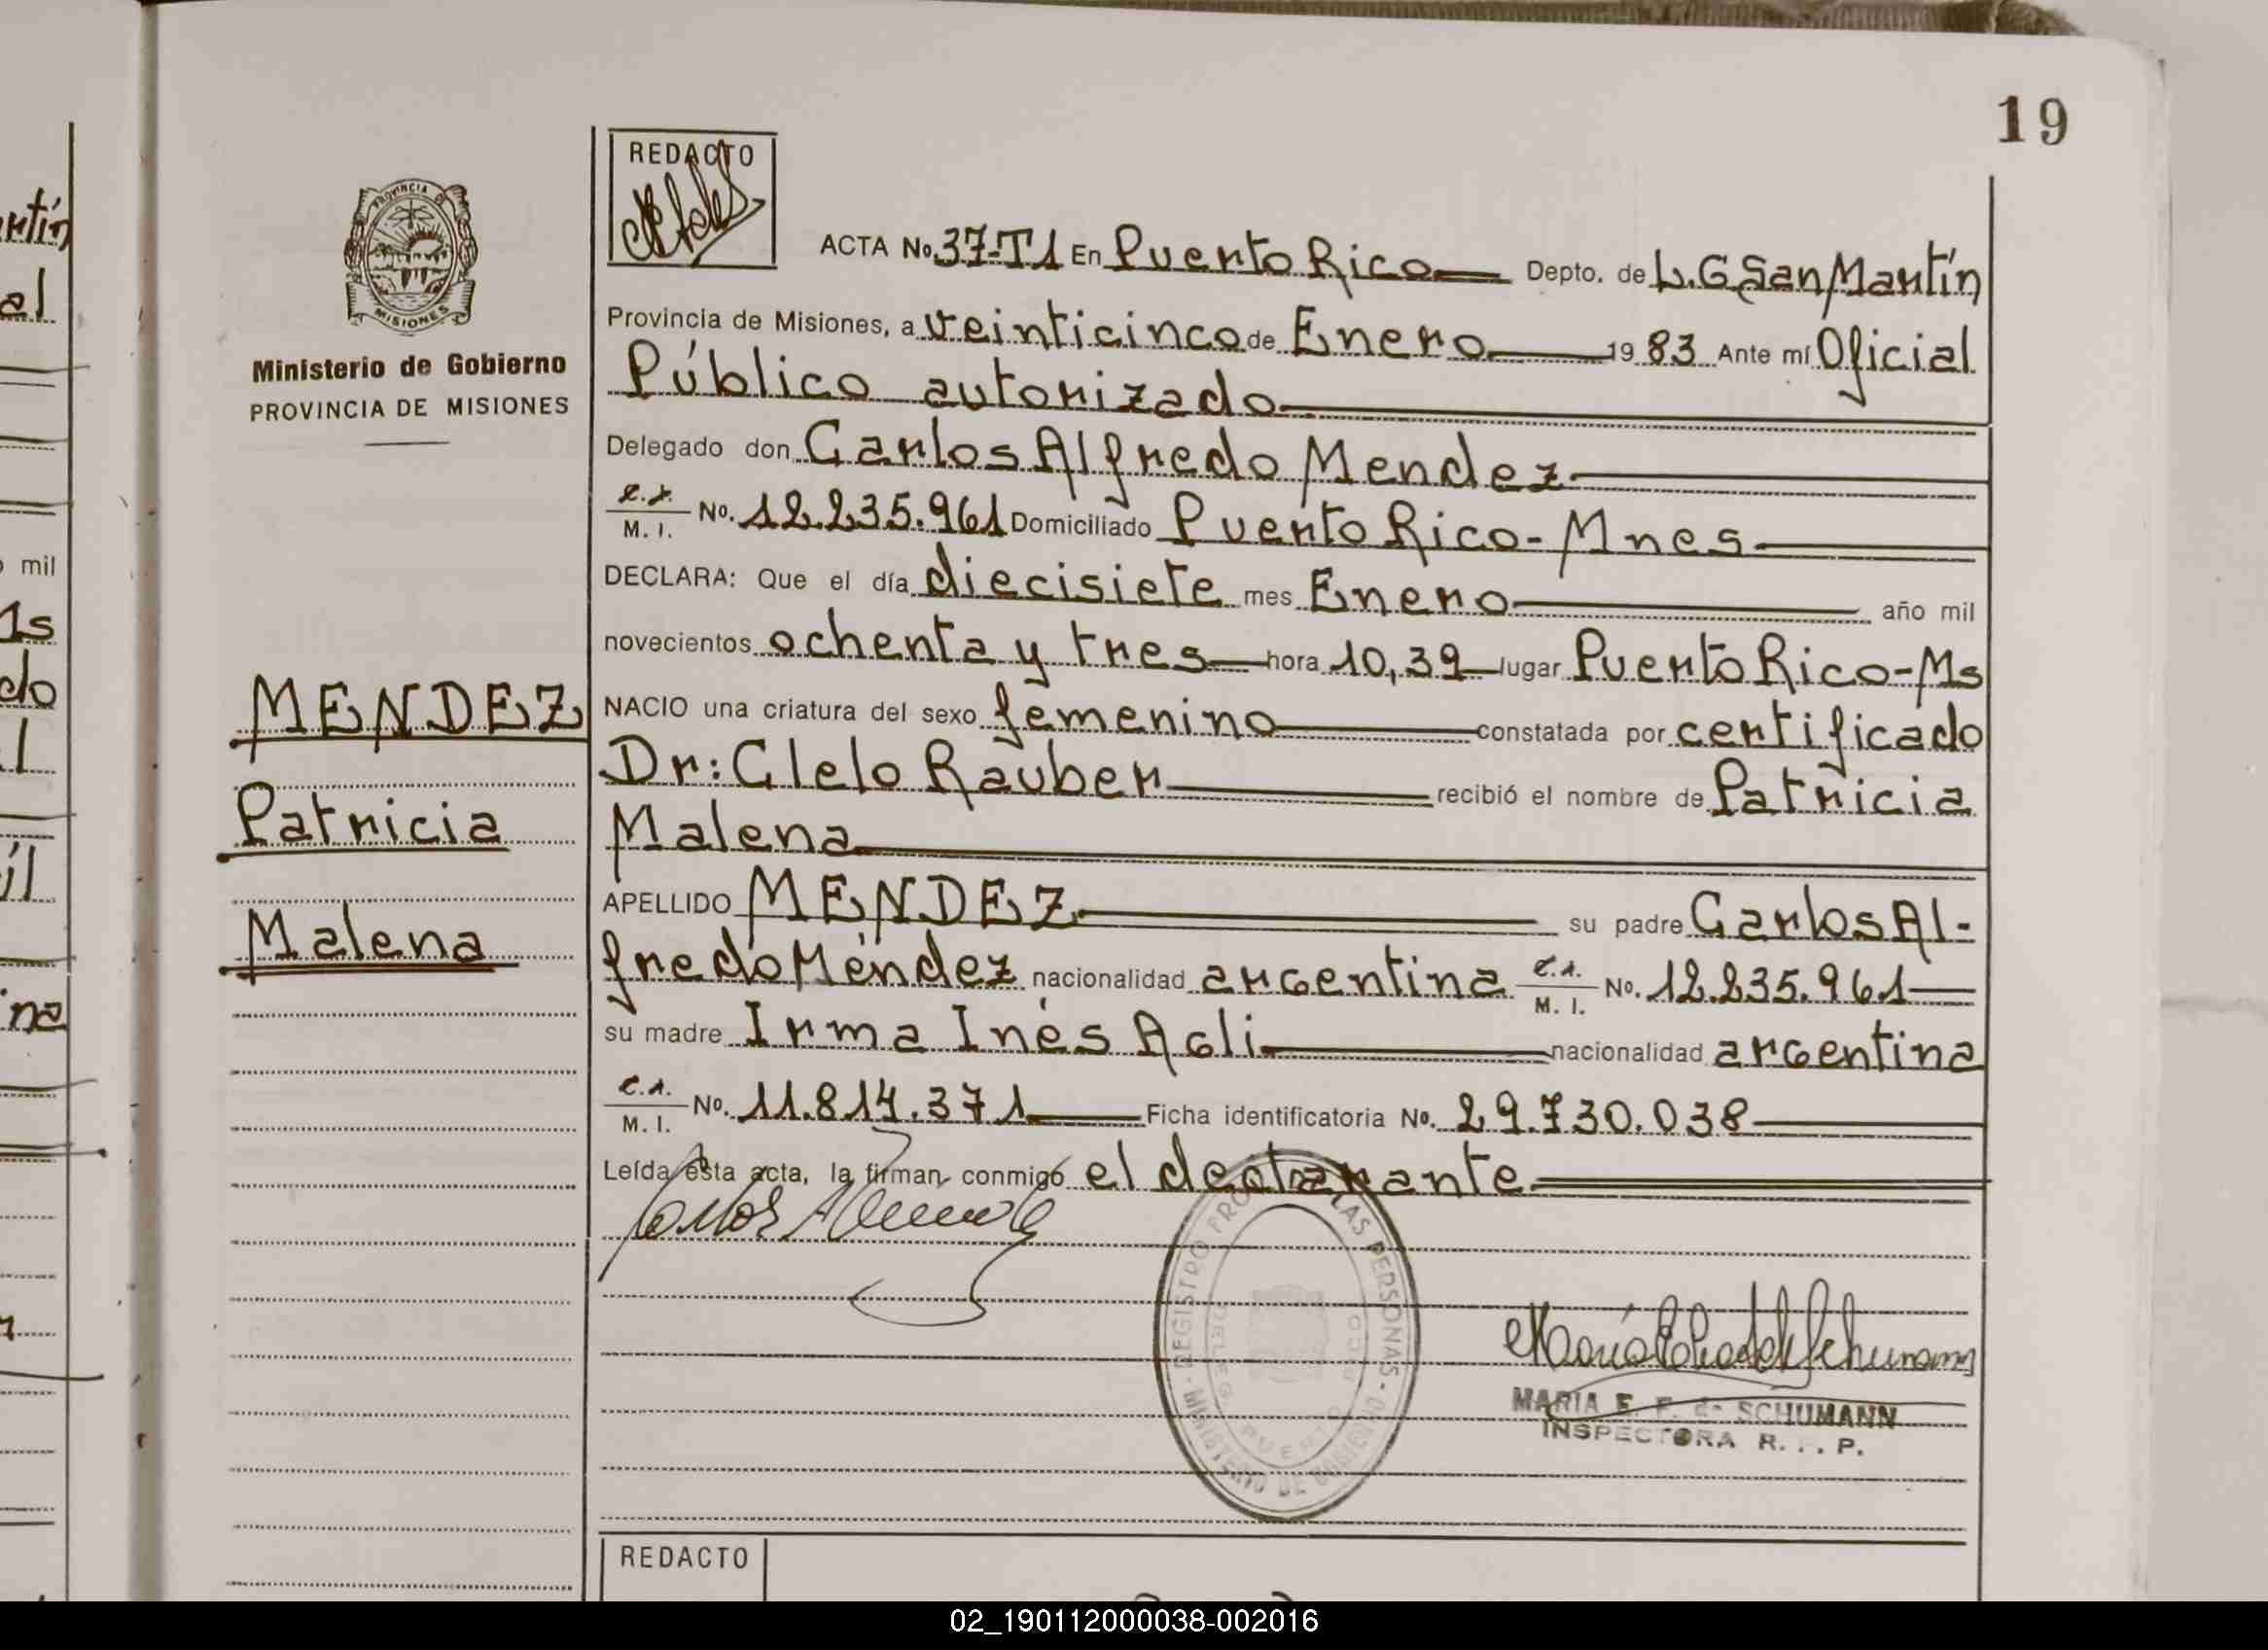 19
REDACTO
PROVINCIA DE
MISIONES
Ministerio de Gobierno
PROVINCIA DE MISIONES
MENDEZ
Patricia
Malena
ACTA No. 37-T1 En Puerto Rico Depto. de L. G San Martín
Provincia de Misiones, a veinticinco de Enero 1983 Ante mí Oficial
Público autorizado
Delegado don Carlos Alfredo Mendez
M. I. No. 12.235.961 Domiciliado Puerto Rico - Mnes
DECLARA: Que el día diecisiete mes Enero año mil
novecientos ochenta y tres hora 10,39 lugar Puerto Rico-Ms
NACIO una criatura del sexo femenino constatada por certificado
Dr: Clelo Rauber recibió el nombre de Patricia
Malena
APELLIDO MENDEZ su padre Carlos Al-
fredo Méndez nacionalidad argentina M. I. No. 12.235.961
su madre Irma Inés Agli nacionalidad argentina
M. I. No. 11.814.371 Ficha identificatoria No. 29.730.038
Leída esta acta, la firman conmigo el declarante
REGISTRO LAS PERSONAS
MINISTERIO DE GOBIERNO
MARIA E. F. de SCHUMANN
INSPECTORA R. . P.
REDACTO
mil
02_190112000038-002016